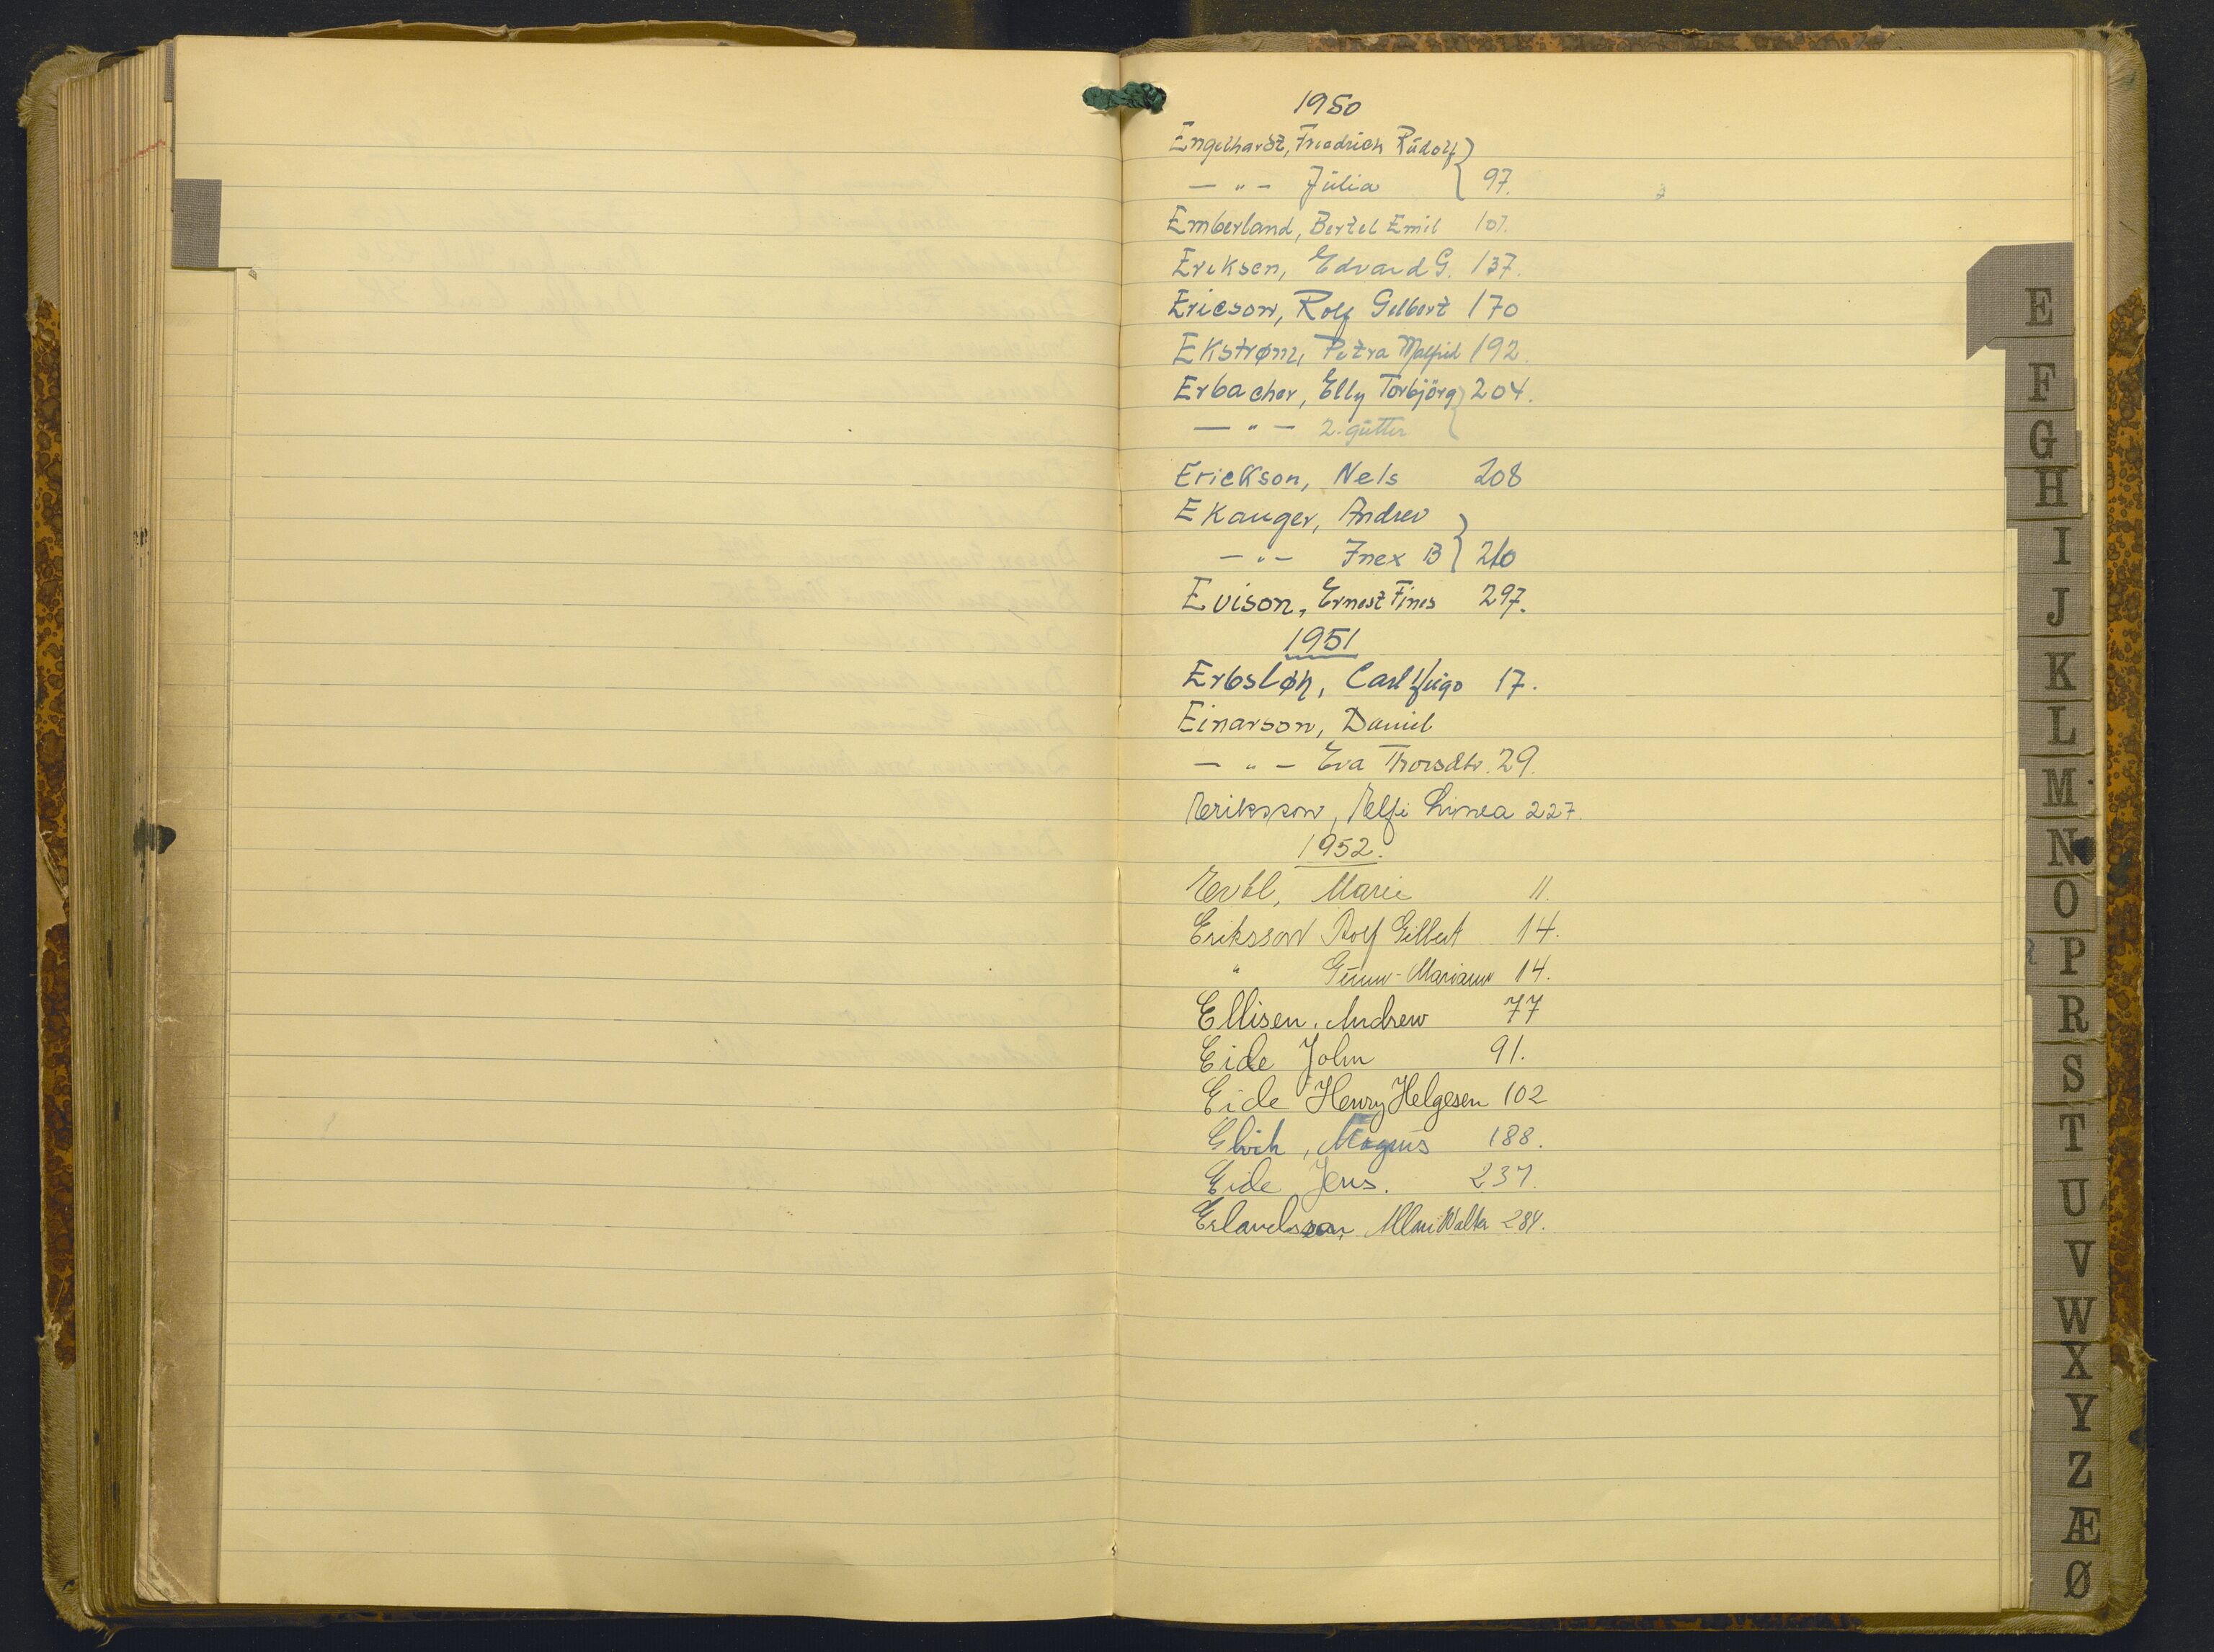 1950
Engelhardt, Friedrich Rudolf }
— " — Julia } 97.
Emberland, Bertel Emil 107.
Eriksen, Edvard G. 137.
Ericson, Rolf Gilbert 170
Ekstrøm, Petra Malfrid 192.
Erbacher, Elly Torbjörg } 204.
— " — 2 gutter }
Erickson, Nels 208
Ekanger, Andrev }
— " — Inex B } 210
Evison, Ernest Fines 297.
1951
Erbsløh, Carl Hugo 17.
Einarson, Daniel
— " — Eva Thorsdtr. 29.
Eriksson, Elfi Linea 227.
1952.
Ertl, Marie 11.
Eriksson Rolf Gilbert 14.
" Gunn-Mariann 14.
Ellisen, Andrew 77
Eide John 91.
Eide Henry Helgesen 102
Magnus 188.
Eide Jens. 237.
Erlandsson, Allan Walter 284.
E
F
G
H
I
J
K
L
M
N
O
P
R
S
T
U
V
W
X
Y
Z
Æ
Ø